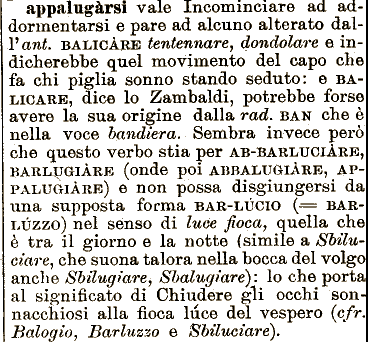 appalugàrsi vale Incominciare ad ad-
dormentarsi e pare ad alcuno alterato dal-
l'ant. BALICÀRE tentennare, dondolare e in-
dicherebbe quel movimento del capo che
fa chi piglia sonno stando seduto: e BA-
LICARE, dice lo Zambaldi, potrebbe forse
avere la sua origine dalla rad. BAN che è
nella voce bandiera. Sembra invece però
che questo verbo stia per AB-BARLUCIÀRE,
BARLUGIÀRE (onde poi ABBALUGIÀRE, AP-
PALUGIÀRE) e non possa disgiungersi da
una supposta forma BAR-LÚCIO (= BAR-
LÚZZO) nel senso di luce fioca, quella che
è tra il giorno e la notte (simile a Sbilu-
ciare, che suona talora nella bocca del volgo
anche Sbilugiare, Sbalugiare): lo che porta
al significato di Chiudere gli occhi son-
nacchiosi alla fioca lúce del vespero (cfr.
Balogio, Barluzzo e Sbiluciare).